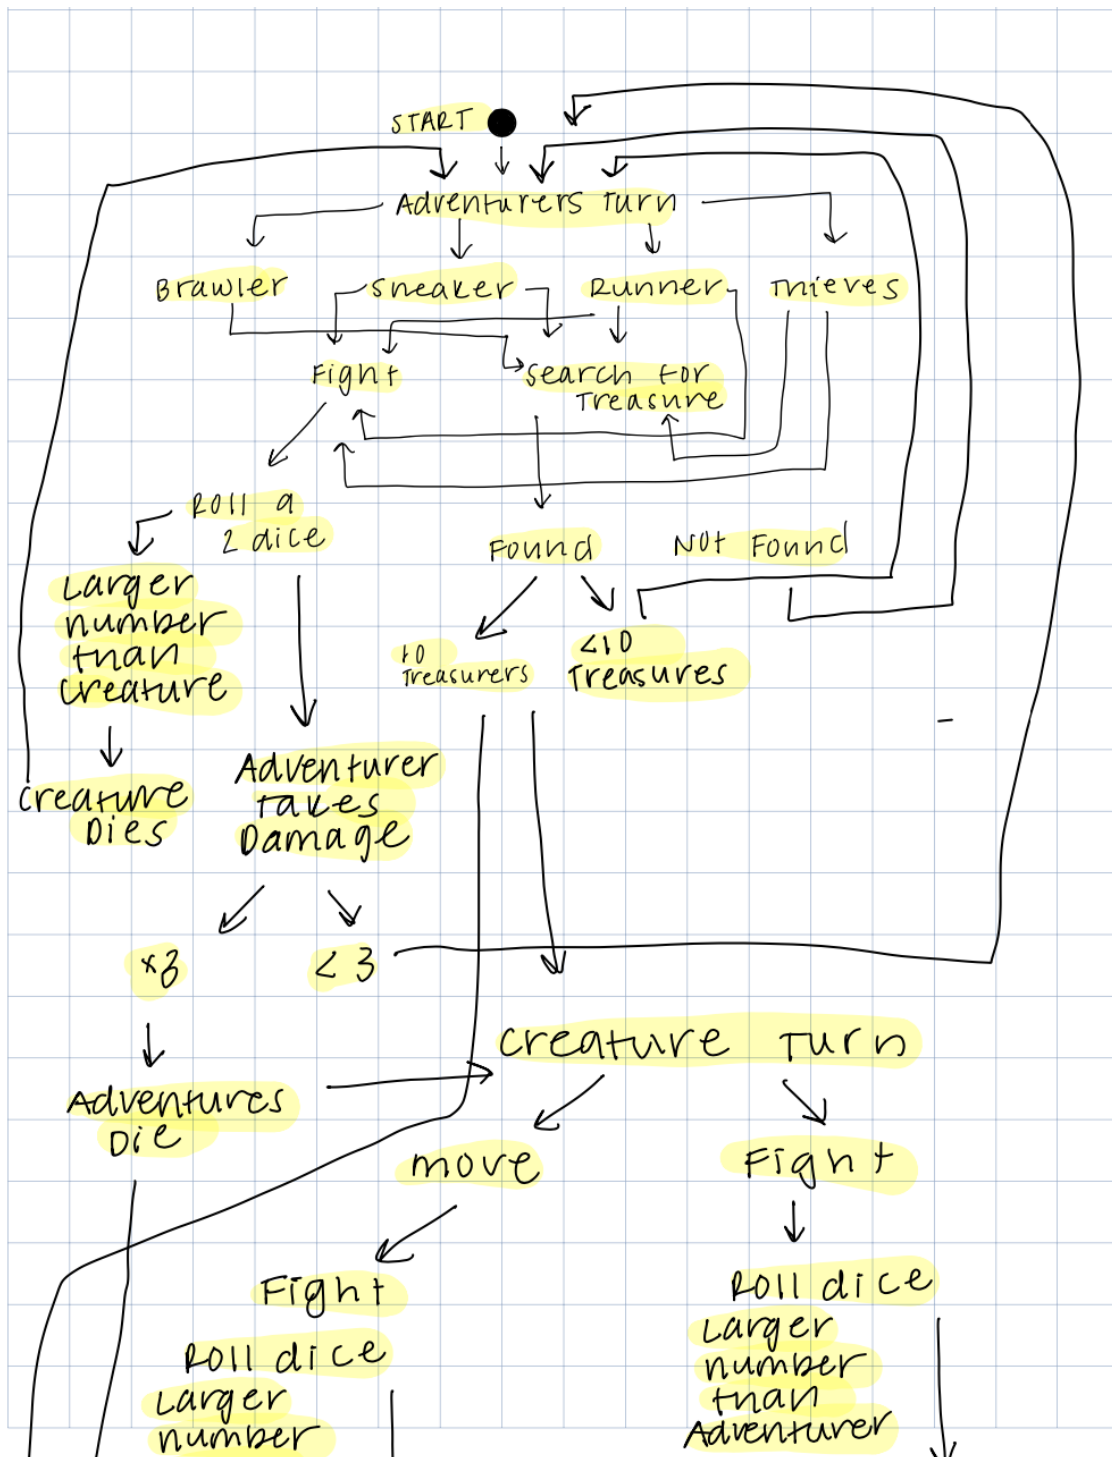 START
Adventurers Turn
Brawler
Sneaker
Runner
Thieves
Fight
Search For
Treasure
Roll a
2 dice
Found
Not Found
Larger
number
than
creature
10
Treasurers
<10
Treasures
Creature
Dies
Adventurer
Takes
Damage
x3
<3
Creature Turn
Adventures
Die
move
Fight
Fight
Roll dice
Larger
number
than
Adventurer
Roll dice
Larger
number